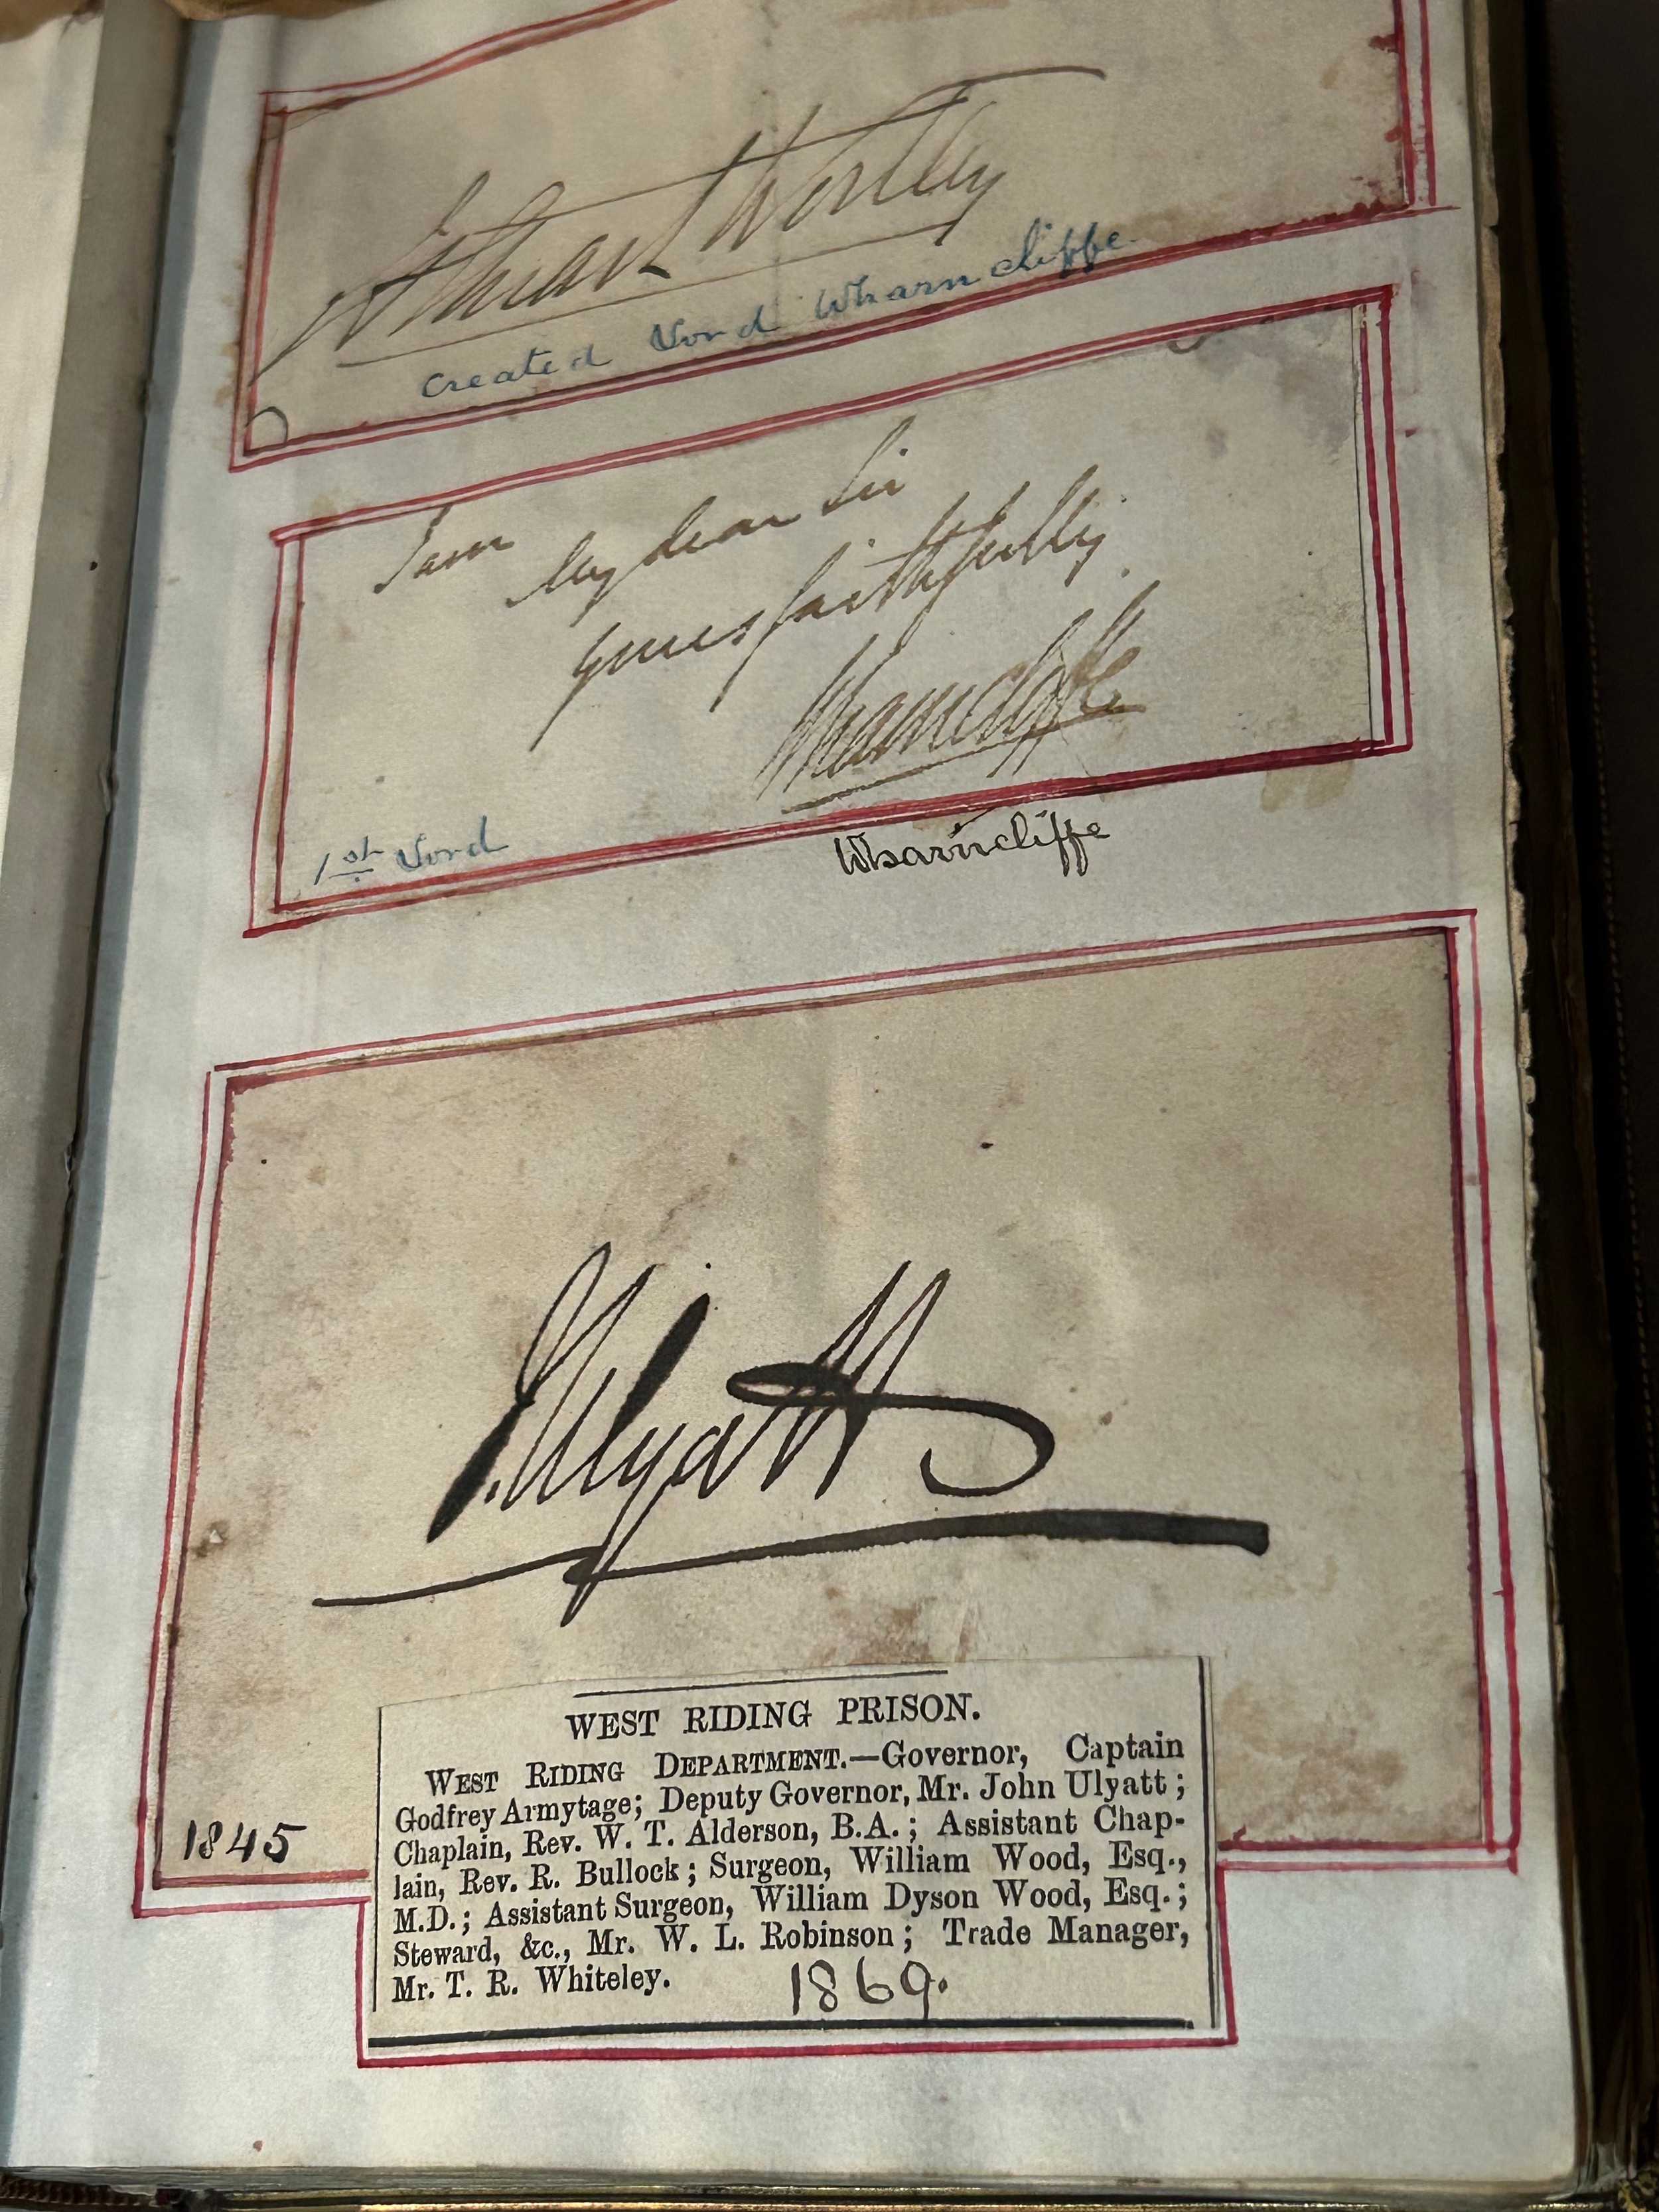 Stuart Wortley
created Lord Wharncliffe
I am
My dear Sir
yours faithfully
Wharncliffe
1st Lord
Wharncliffe
J. Ulyatt
WEST RIDING PRISON.
WEST RIDING DEPARTMENT.—Governor, Captain
Godfrey Armytage; Deputy Governor, Mr. John Ulyatt;
Chaplain, Rev. W. T. Alderson, B.A.; Assistant Chap-
lain, Rev. R. Bullock; Surgeon, William Wood, Esq.,
M.D.; Assistant Surgeon, William Dyson Wood, Esq.;
Steward, &c., Mr. W. L. Robinson; Trade Manager,
Mr. T. R. Whiteley.
1869.
1845